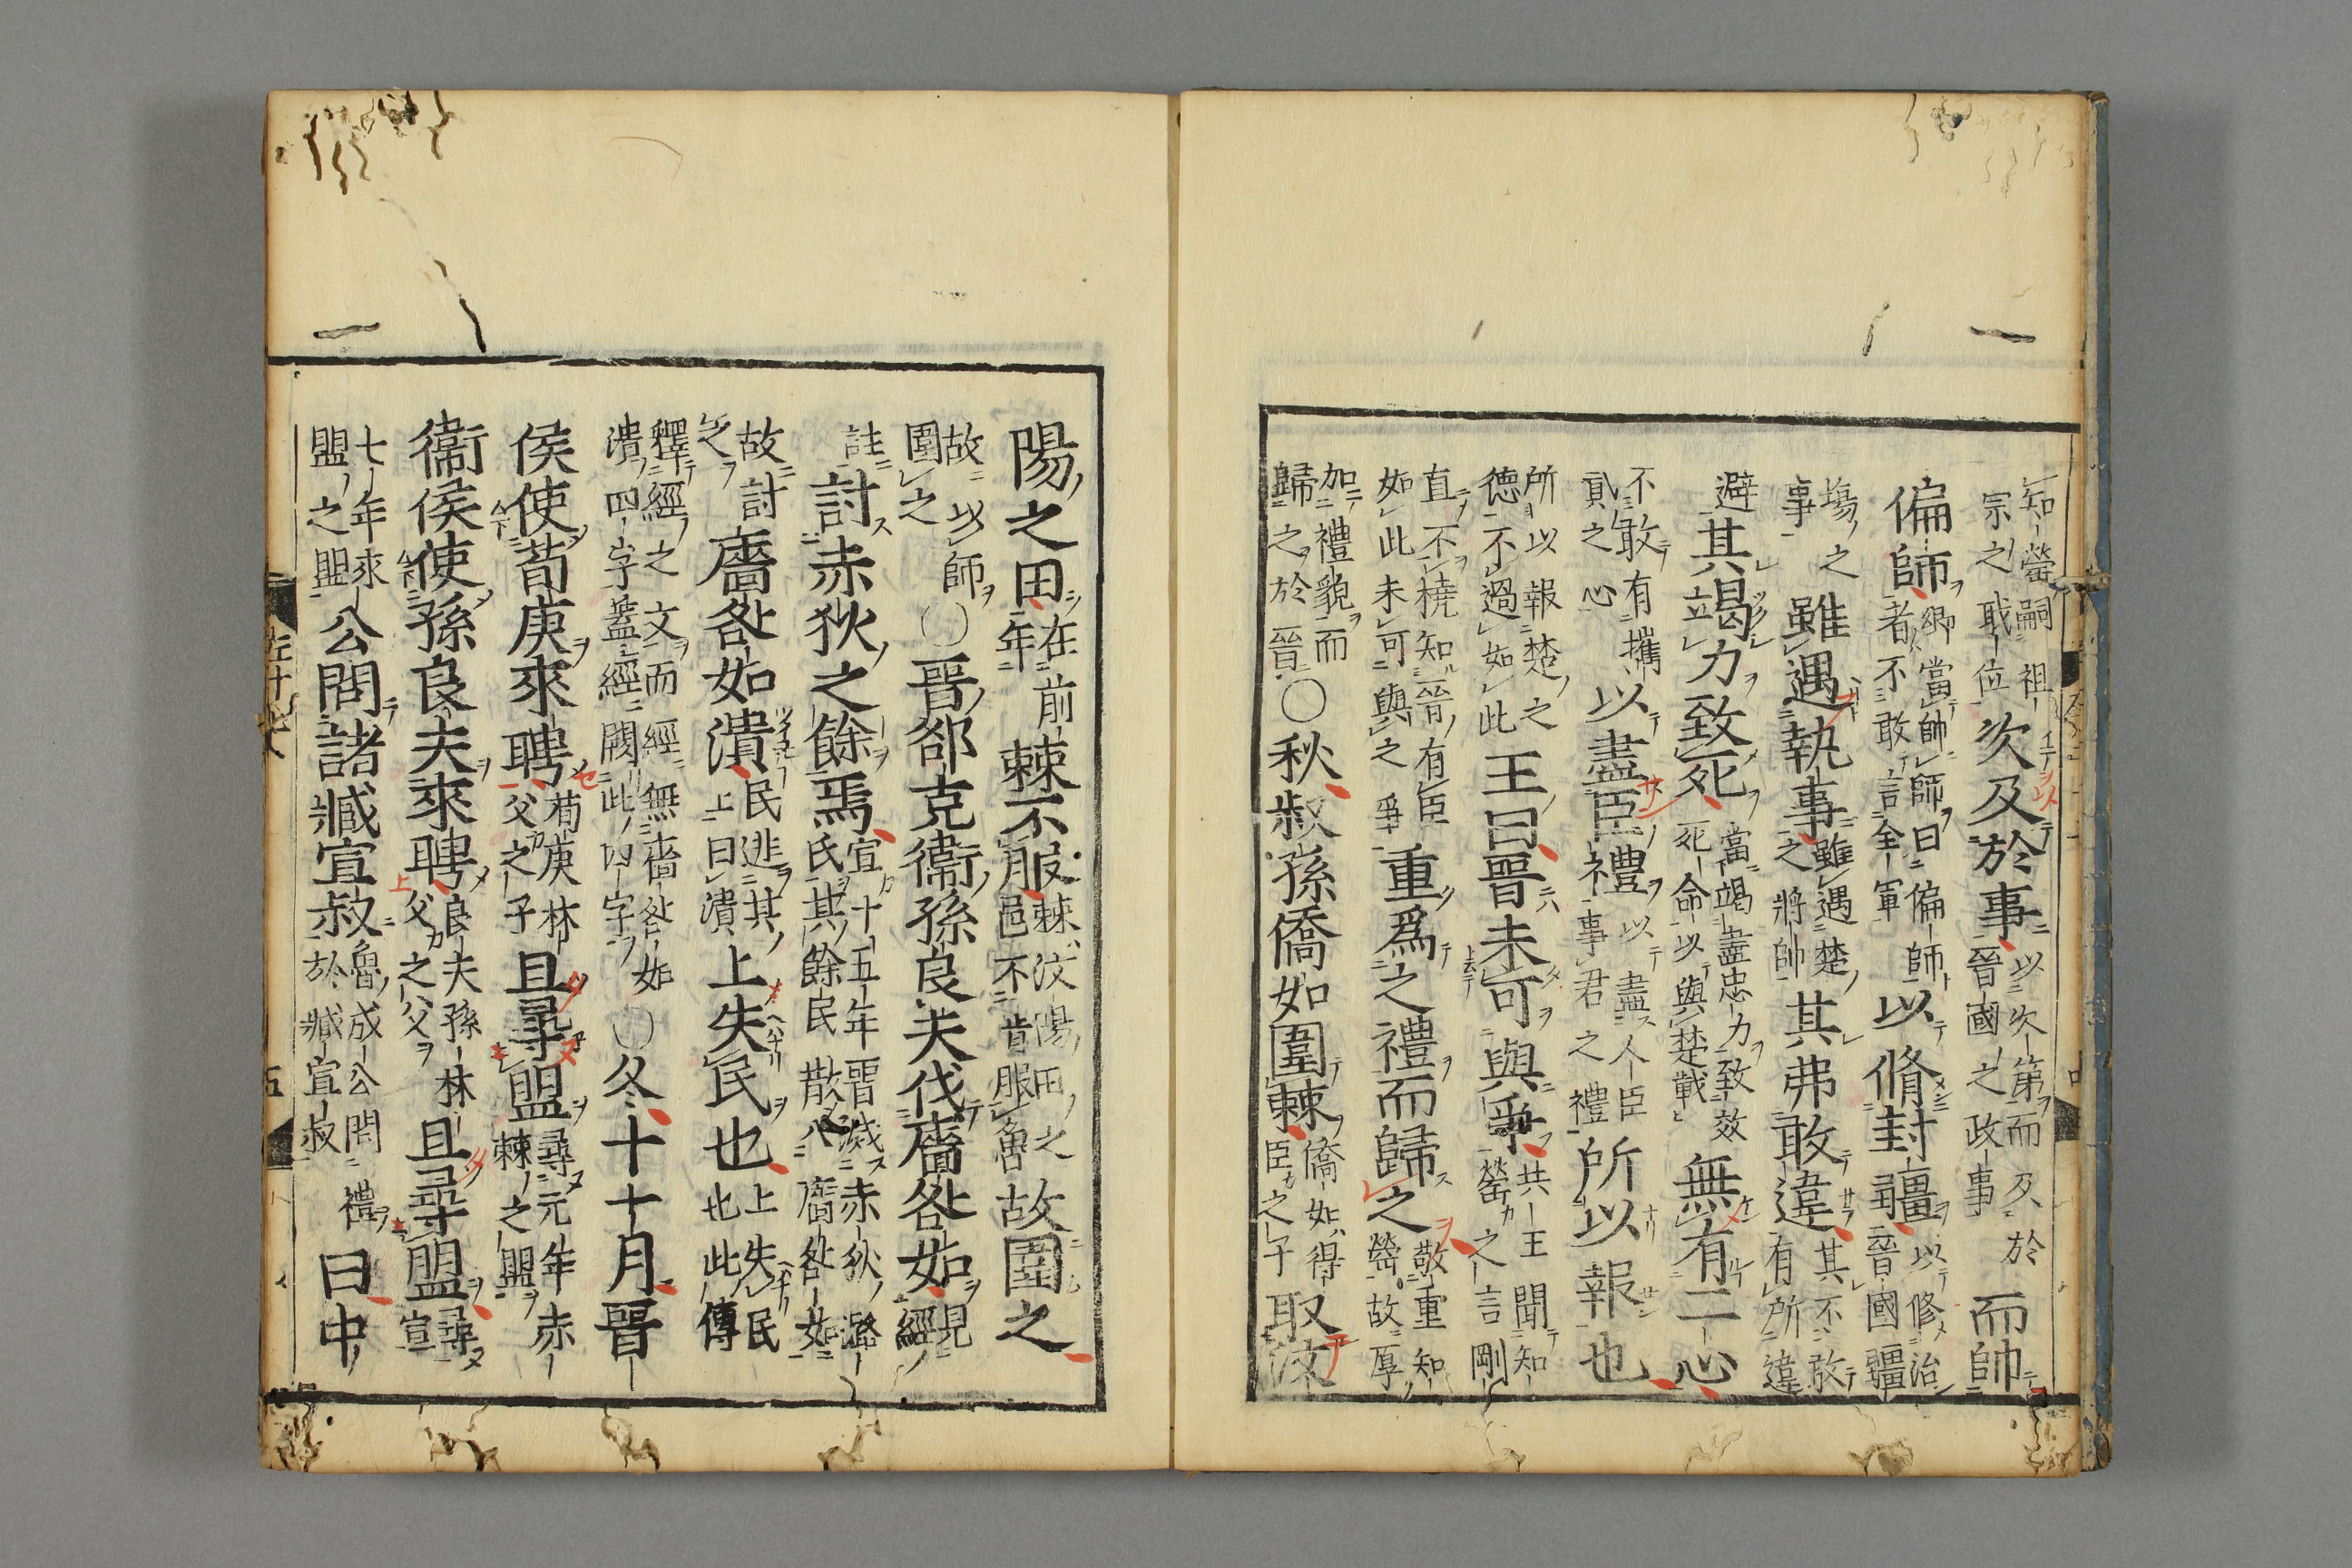 知罃嗣祖宗之職位次及於事以次第而及於晉國之政事而帥
偏師卿當帥師曰偏師者不敢言全軍以脩封疆以修治晉國疆
埸之事雖遇執事雖遇楚之將帥其弗敢違其不敢有所違
避其竭力致死當竭盡忠力致效死命以與楚戰無有二心
不敢有攜貳之心以盡臣禮以盡人臣事君之禮所以報也
所以報楚之德不過如此王曰晉未可與爭共王聞知罃之言剛
直不撓知晉有臣如此未可與之爭重爲之禮而歸之敬重知罃故厚
加禮貌而歸之於晉○秋叔孫僑如圍棘僑如得臣之子取汶
陽之田在前年棘不服棘汶陽田之邑不肯服魯故圍之
故以師圍之○晉郤克衞孫良夫伐廧咎如見經
註討赤狄之餘焉宣十五年晉滅赤狄潞氏其餘民散入廧咎如
故討之廧咎如潰民逃其上曰潰上失民也上失民也此傳
釋經之文而經無廧咎如潰四字蓋經闕此四字○冬十十月晉
侯使荀庚來聘荀庚林父之子且尋盟尋元年赤棘之盟
衞侯使孫良夫來聘良夫孫林父之父且尋盟尋宣
七年來盟之盟公問諸臧宣叔魯成公問禮於臧宣叔曰中
五